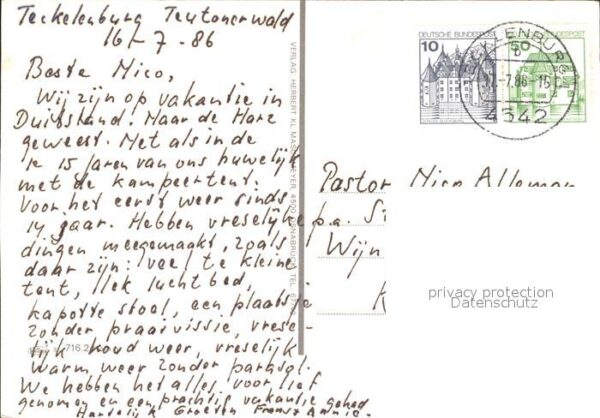 Teckelenburg Teutonerwald
16-7-86
Beste Nico,
Wij zijn op vakantie in
Duitsland. Naar de Harz
geweest. Net als in de
1e 15 jaren van ons huwelijk
met de kampeertent.
Voor het eerst weer sinds
14 jaar. Hebben vreselijke
dingen meegemaakt, zoals
daar zijn: veel te kleine
tent, lek luchtbed,
kapotte stoel, een plaatsje
zonder praaivissie, vrese-
lijk koud weer, vreselijk
warm weer zonder parasol.
We hebben het alles voor lief
genomen en een prachtig vakantie gehad
Hartelijk Groeten Frans & Annie.
VERLAG: HERBERT KL. MASCHMEYER, 4500 OSNABRÜCK, TEL.
716.2
DEUTSCHE BUNDESPOST
10
50
LLENBURG
-7.86-15
4542
Pastor Nico Alleman
p.a. St
Wijn
K
privacy protection
Datenschutz